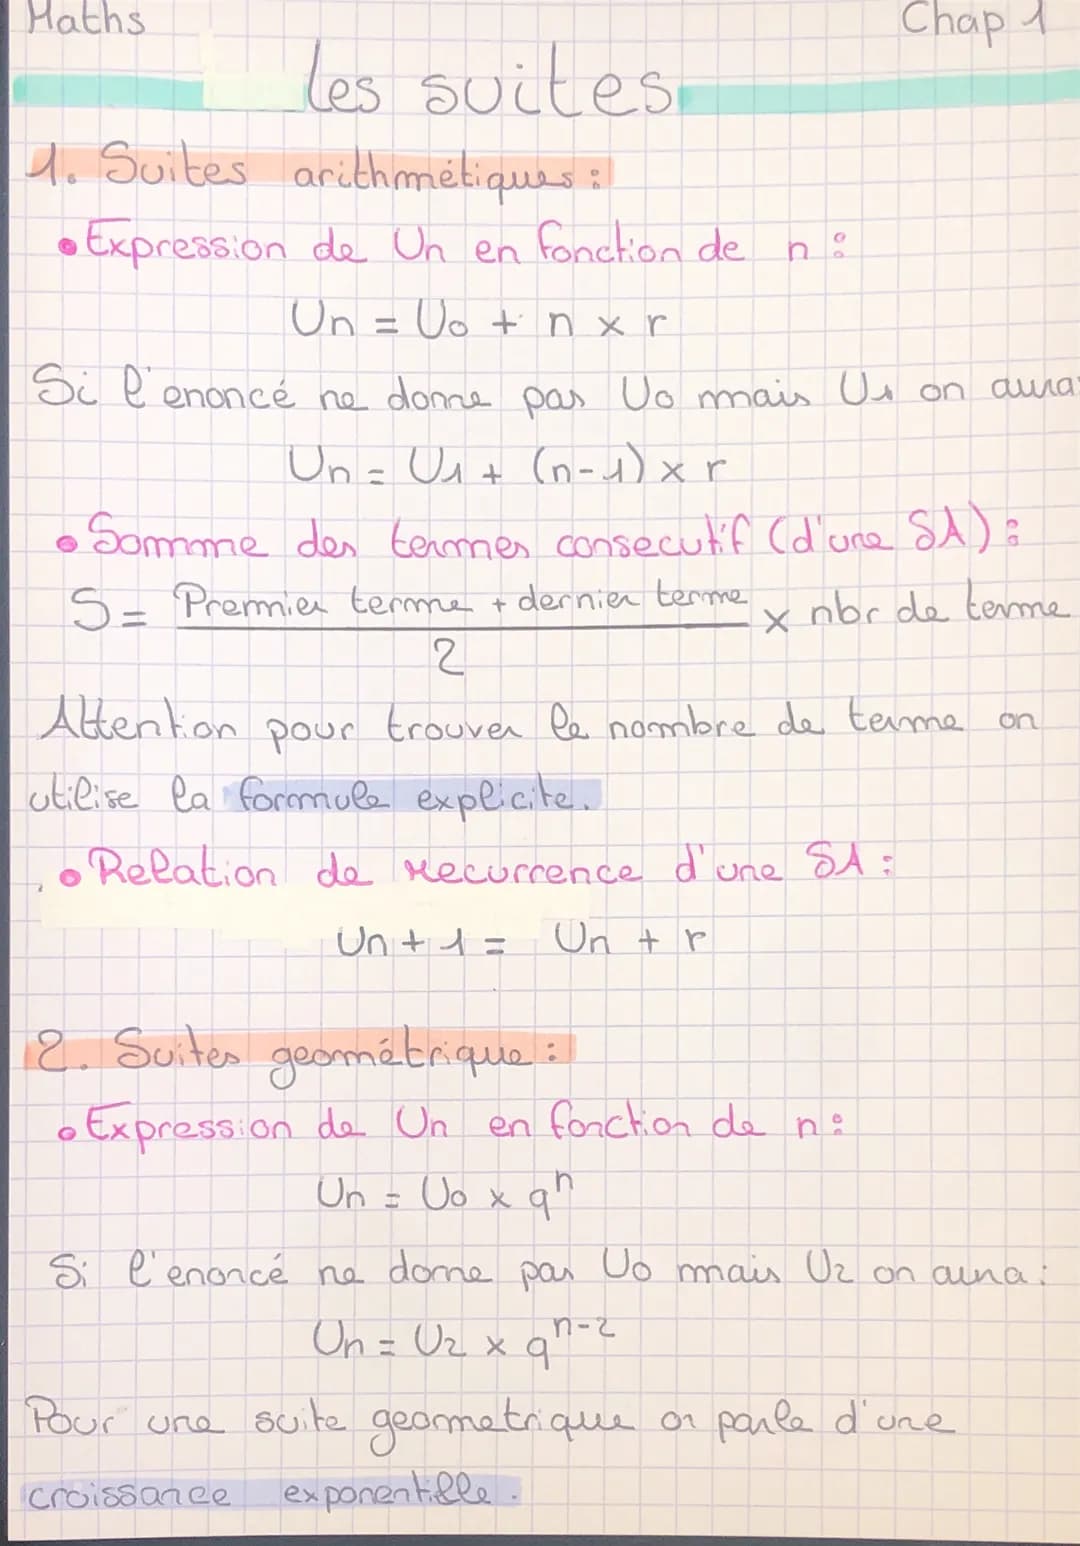 Maths Chap 1
les suites
1. Suites arithmétiques :
• Expression de Un en fonction de n :
Un = U0 + n x r
Si l'enoncé ne donne pas U0 mais U1 on aura:
Un = U1 + (n-1) x r
• Somme des termes consecutif (d'une SA) :
S = Premier terme + dernier terme x nbr de terme
2
Attention pour trouver le nombre de terme on
utilise la formule explicite.
• Relation de recurrence d'une SA :
Un+1 = Un + r
2. Suites geométrique :
• Expression de Un en fonction de n :
Un = U0 x qⁿ
Si l'enoncé ne donne pas U0 mais U2 on aura :
Un = U2 x qⁿ⁻²
Pour une suite geometrique on parle d'une
croissance exponentielle.